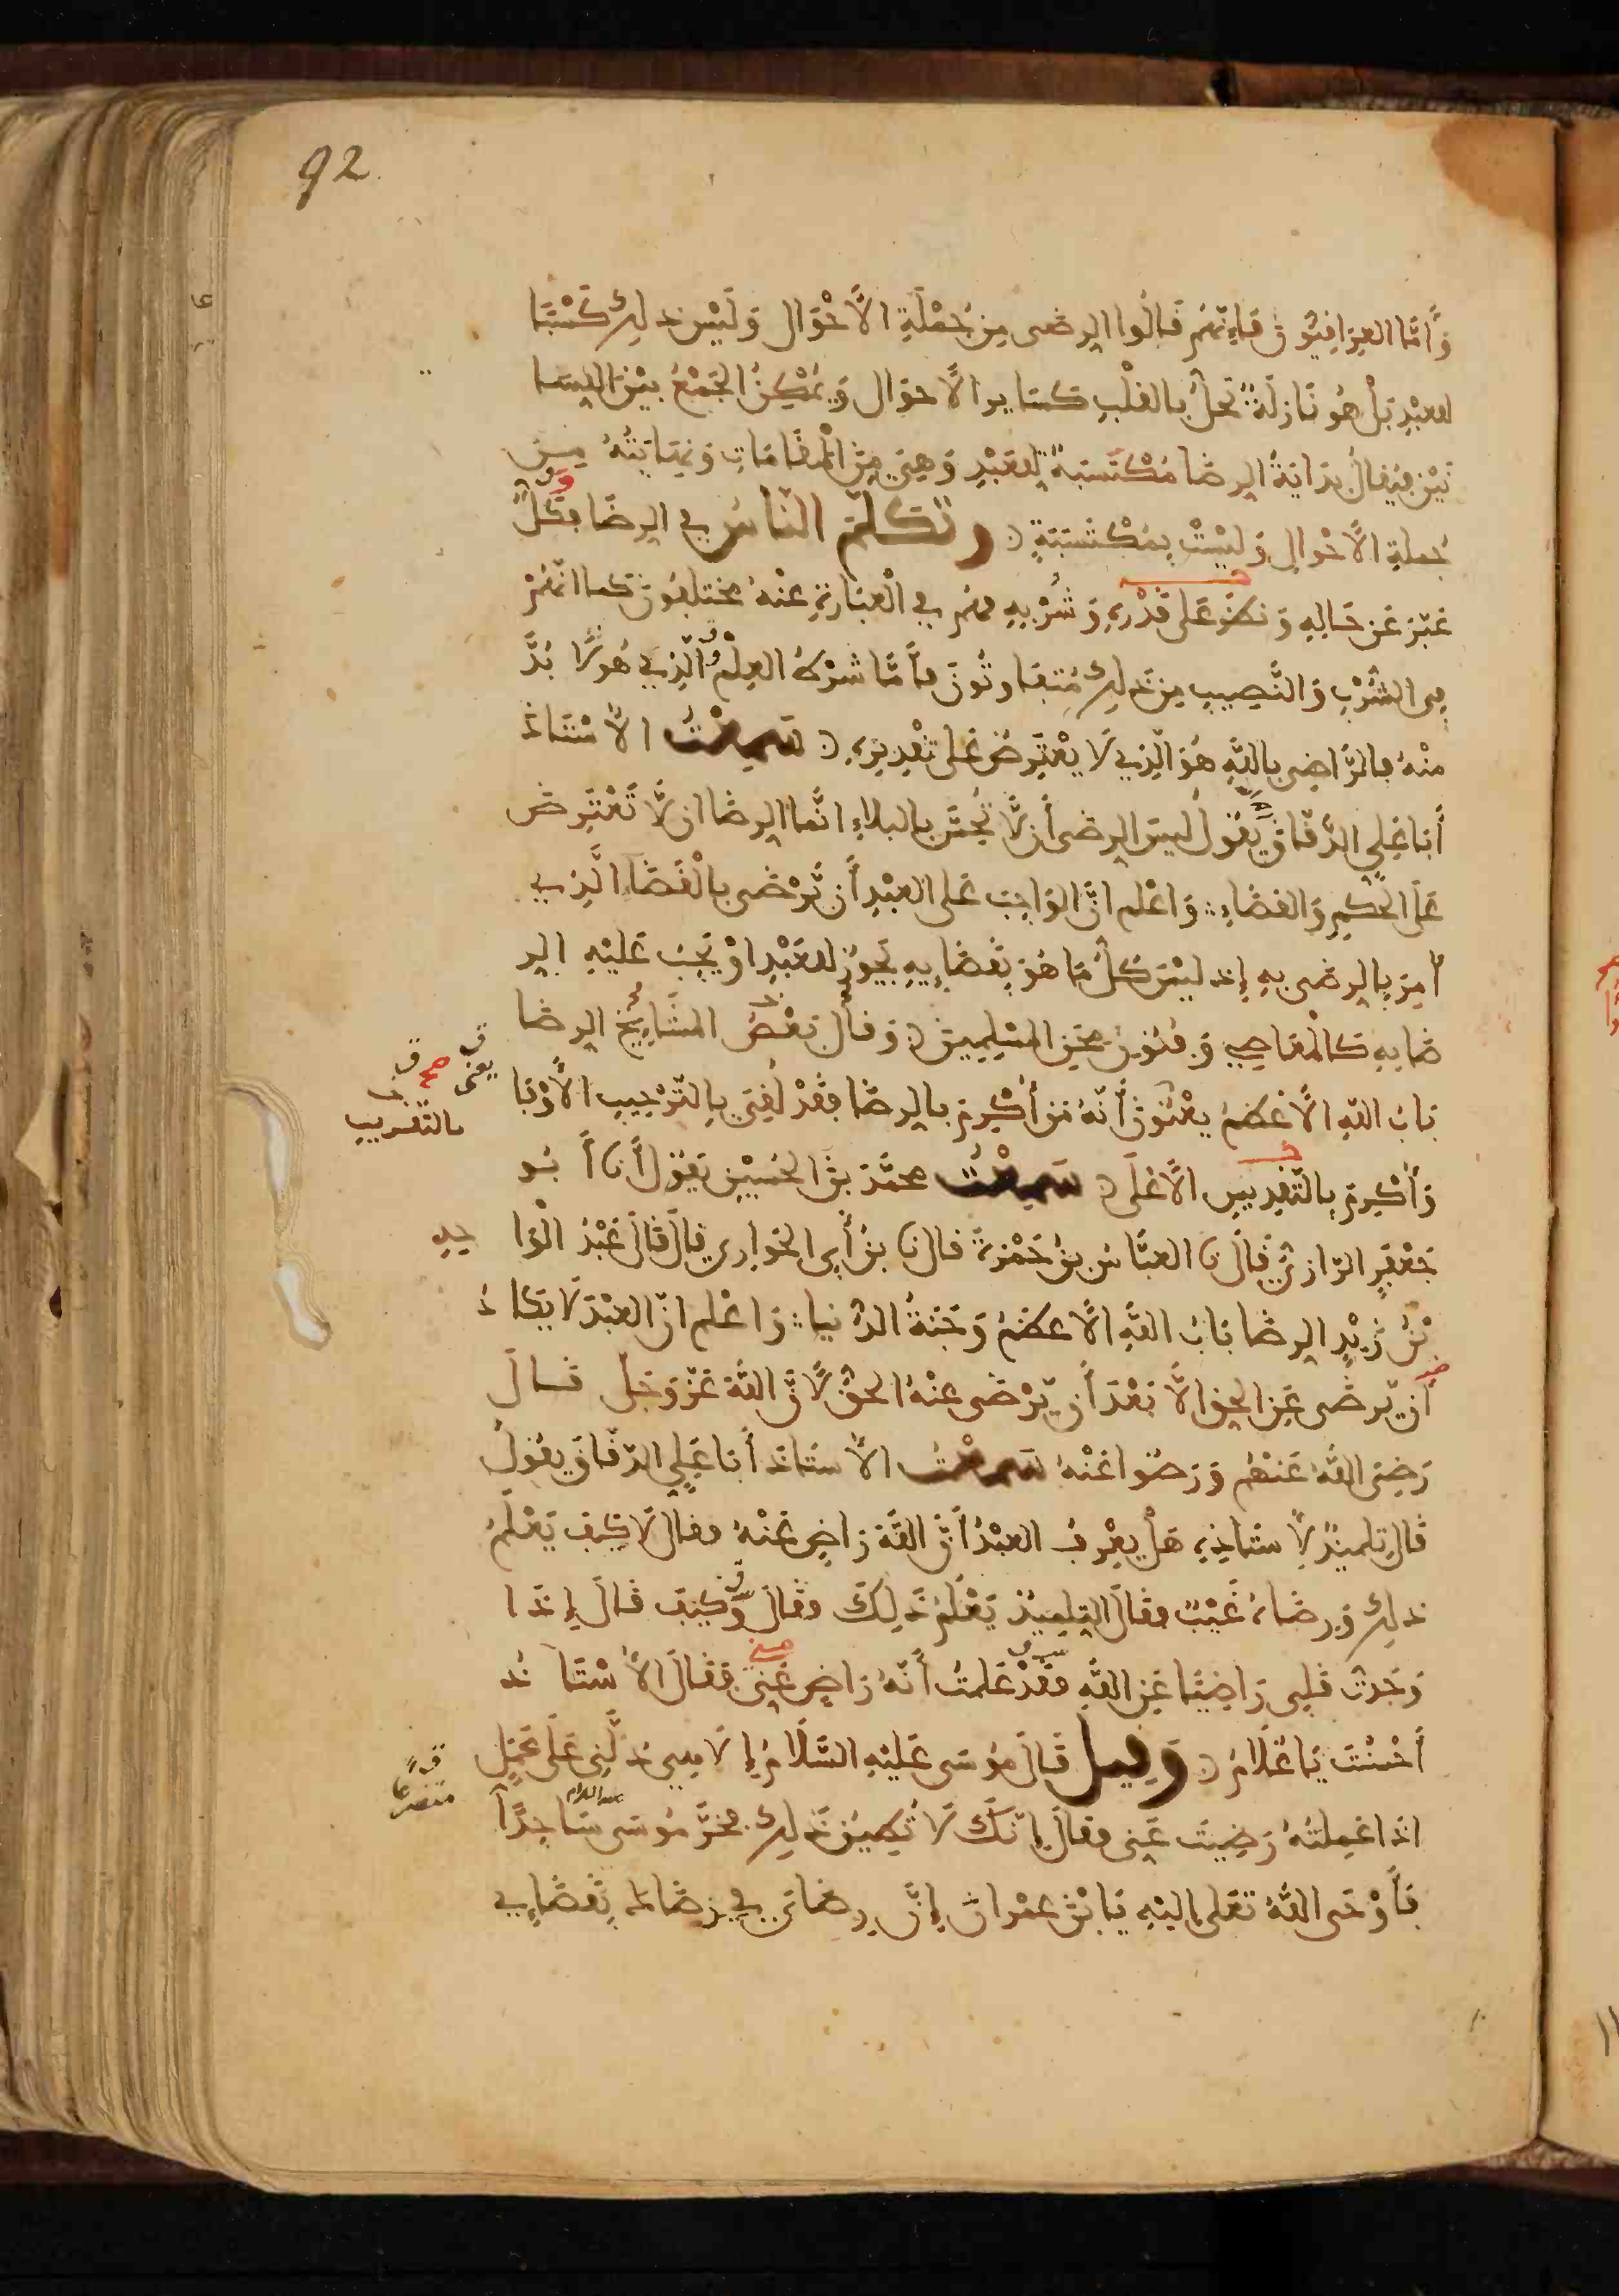 92
وَأَمَّا العِرَاقِيُّونَ فَإِنَّهُم قَالُوا الرِضَى مِن جُمْلَةِ الأَحْوَال وَلَيْسَ ذلِكَ كَسْبًا
لِلعَبْدِ بَلْ هُوَ نَازِلَةٌ تَحُلُّ بِالقَلْبِ كسَايرِ الأَحوَال وَيُمْكِنُ الجَمْعُ بَيْنَ اللِسَا
نَيْنِ فيُقالُ بِدَايَةُ الرِضَا مُكْتَسَبَةٌ لِلعَبْدِ وَهِيَ مِنَ المَقَامَاتِ وَنِهَايَتُهُ مِن
جُملَةِ الأَحْوَالِ وَلَيْسَتْ بِمُكْتَسَبَةٍ وتَكَلَّمَ النَاسُ فِي الرِضَا فكُلٌّ
عَبَّرَ عَن حَالِهِ وَنطقَ عَلى قَدْرِهِ وَشُرْبِهِ فهُم فِي العِبَارَةِ عَنْهُ مختَلِفُونَ كمَا انَّهُمْ
فِي الشُّرْبِ وَالنَّصِيبِ مِن ذَلِكَ مُتَفَاوِتُونَ فأَمَّا شَرْطُ العِلْمِ وَالَّذِي هُوَ لَا بُدَّ
مِنْهُ فَالرَّاضِي بِاللَّهِ هُوَ الَّذِي لَا يَعْتَرِضُ عَلى تَقْدِيرِهِ سَمِعْتُ الأُسْتَاذَ
أَبَا عَلِي الدَّقَّاقَ يَقُولُ لَيسَ الرِضَى أَن لَّا تُحِسَّ بِالبَلاءِ انَّمَا الرِضَا ان لَّا تَعْتَرِضَ
عَلَى الحُكمِ وَالقَضَاءِ وَاعْلَم انَّ الوَاجِبَ عَلى العَبْدِ أَن يَّرْضَى بِالْقَضَاءِ الَّذِي
أُمِرَ بِالرِضَى بِهِ إِذ ليْسَ كُلُّ مَا هُوَ بِقَضَايِهِ يَجُوزُ لِلعَبْدِ اوْ يَجِبُ عَلَيْهِ الرِ
ضَا بِهِ كَالْمَعَاصِي وَفُنُونِ مِحَنِ المُسْلِمِينَ وَقَالَ بَعْضُ المَشَايِخِ الرِضَا
بَابُ اللهِ الأَعْظَمُ يَعْنُونَ أَنَّهُ مَن أُكْرِمَ بِالرِضَا فَقَدْ لُقِيَ بِالتَّرْحِيبِ الأَوْفَا
وَأُكْرِمَ بِالتَّقْدِيسِ الأَعْلَى سَمِعْتُ محَمَّدَ بْنَ الحُسَيْنِ يَقُولُ أَنَا أَبُو
جَعْفَرٍ الرَازِيُّ قَالَ نا العَبَّاسُ بْنُ حَمْزَةَ قال نا بنُ أَبِي الحَوارِي قَالَ قَالَ عَبْدُ الْوَا حِدِ
بْنُ زَيْدٍ الرِضَا بَابُ اللهِ الأَعظَمُ وَجَنَّةُ الدُّنيَا وَاعْلَم انَّ العَبْدَ لَا يَكَادُ
أَن يَّرضَى عَنِ الحَقِ الَّا بَعْدَ أَن يَّرْضَى عَنْهُ الحَقُّ لأَنَّ اللهَ عَزَّ وَجَلَّ قَالَ
رَضِيَ اللهُ عَنْهُم وَرَضُوا عَنْهُ سَمِعْتُ الأُستَاذَ أَبَا عَلِي الدَقَّاقَ يَقُولُ
قَالَ تِلمِيذٌ لأُستَاذِهِ هَل يَعْرِفُ العَبْدُ أَنَّ اللهَ رَاضٍ عَنْهُ فقال لَا كَيفَ يَعْلَمُ
ذلِكَ وَرِضَاهُ غَيْبٌ فقَالَ التِلمِيذُ يَعْلَمُ ذَلِكَ فقَالَ وَكَيفَ قَالَ إِذَا
وَجَدتُ قَلبِي رَاضِيًا عَنِ اللهِ فقَدْ عَلمتُ أَنَّهُ رَاضٍ عَنِّي فَقَالَ الأُسْتَاذُ
أَحْسَنْتَ يَا غُلَامُ وَقِيلَ قَالَ مُوسَى عَلَيْهِ السَّلَامُ إِلَاهِي دُلَّنِي عَلَى عَمَلٍ
اذَا عَمِلتُهُ رَضِيتَ عَنِّي فقَالَ إِنَّكَ لَا تُطِيقُ ذَلِكَ فخَرَّ مُوسَى عليه السلام سَاجِدًا
فَأَوْحَى اللهُ تَعَلى إِلَيْهِ يَا بْنَ عِمْرَانَ إِنَّ رِضَاىَ فِي رِضَاكَ بِقَضَائِي
يعنى
صح
بالتقريب
متضرعا